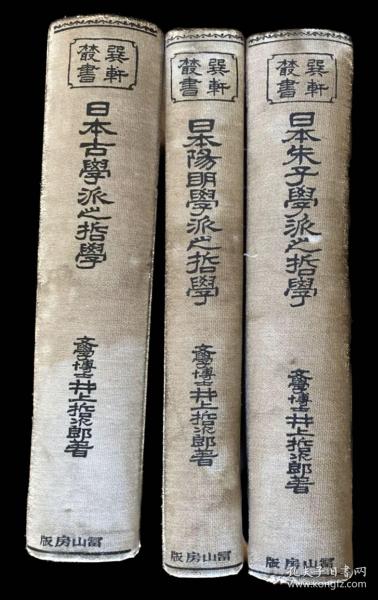 巽軒
叢書
日本古學派之哲學
文學博士井上哲次郎著
冨山房版
巽軒
叢書
日本陽明學派之哲學
文學博士井上哲次郎著
冨山房版
巽軒
叢書
日本朱子學派之哲學
文學博士井上哲次郎著
冨山房版
孔夫子旧书网
kongfz.com